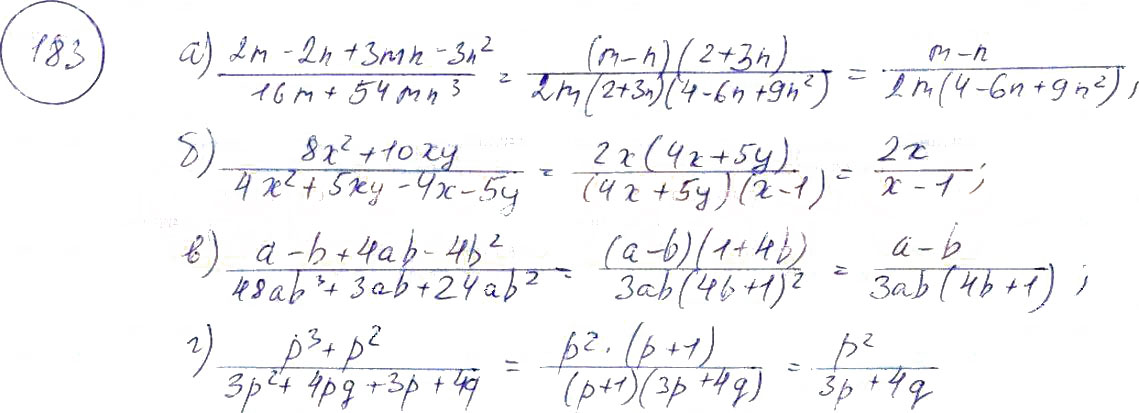 183
а) (2m - 2n + 3mn - 3n²)/(16m + 54mn³) = ((m-n)(2+3n))/(2m(2+3n)(4-6n+9n²)) = (m-n)/(2m(4-6n+9n²));
б) (8x² + 10xy)/(4x² + 5xy - 4x - 5y) = (2x(4x+5y))/((4x+5y)(x-1)) = 2x/(x-1);
в) (a - b + 4ab - 4b²)/(48ab³ + 3ab + 24ab²) = ((a-b)(1+4b))/(3ab(4b+1)²) = (a-b)/(3ab(4b+1));
г) (p³ + p²)/(3p² + 4pq + 3p + 4q) = (p² · (p+1))/((p+1)(3p+4q)) = p²/(3p+4q)